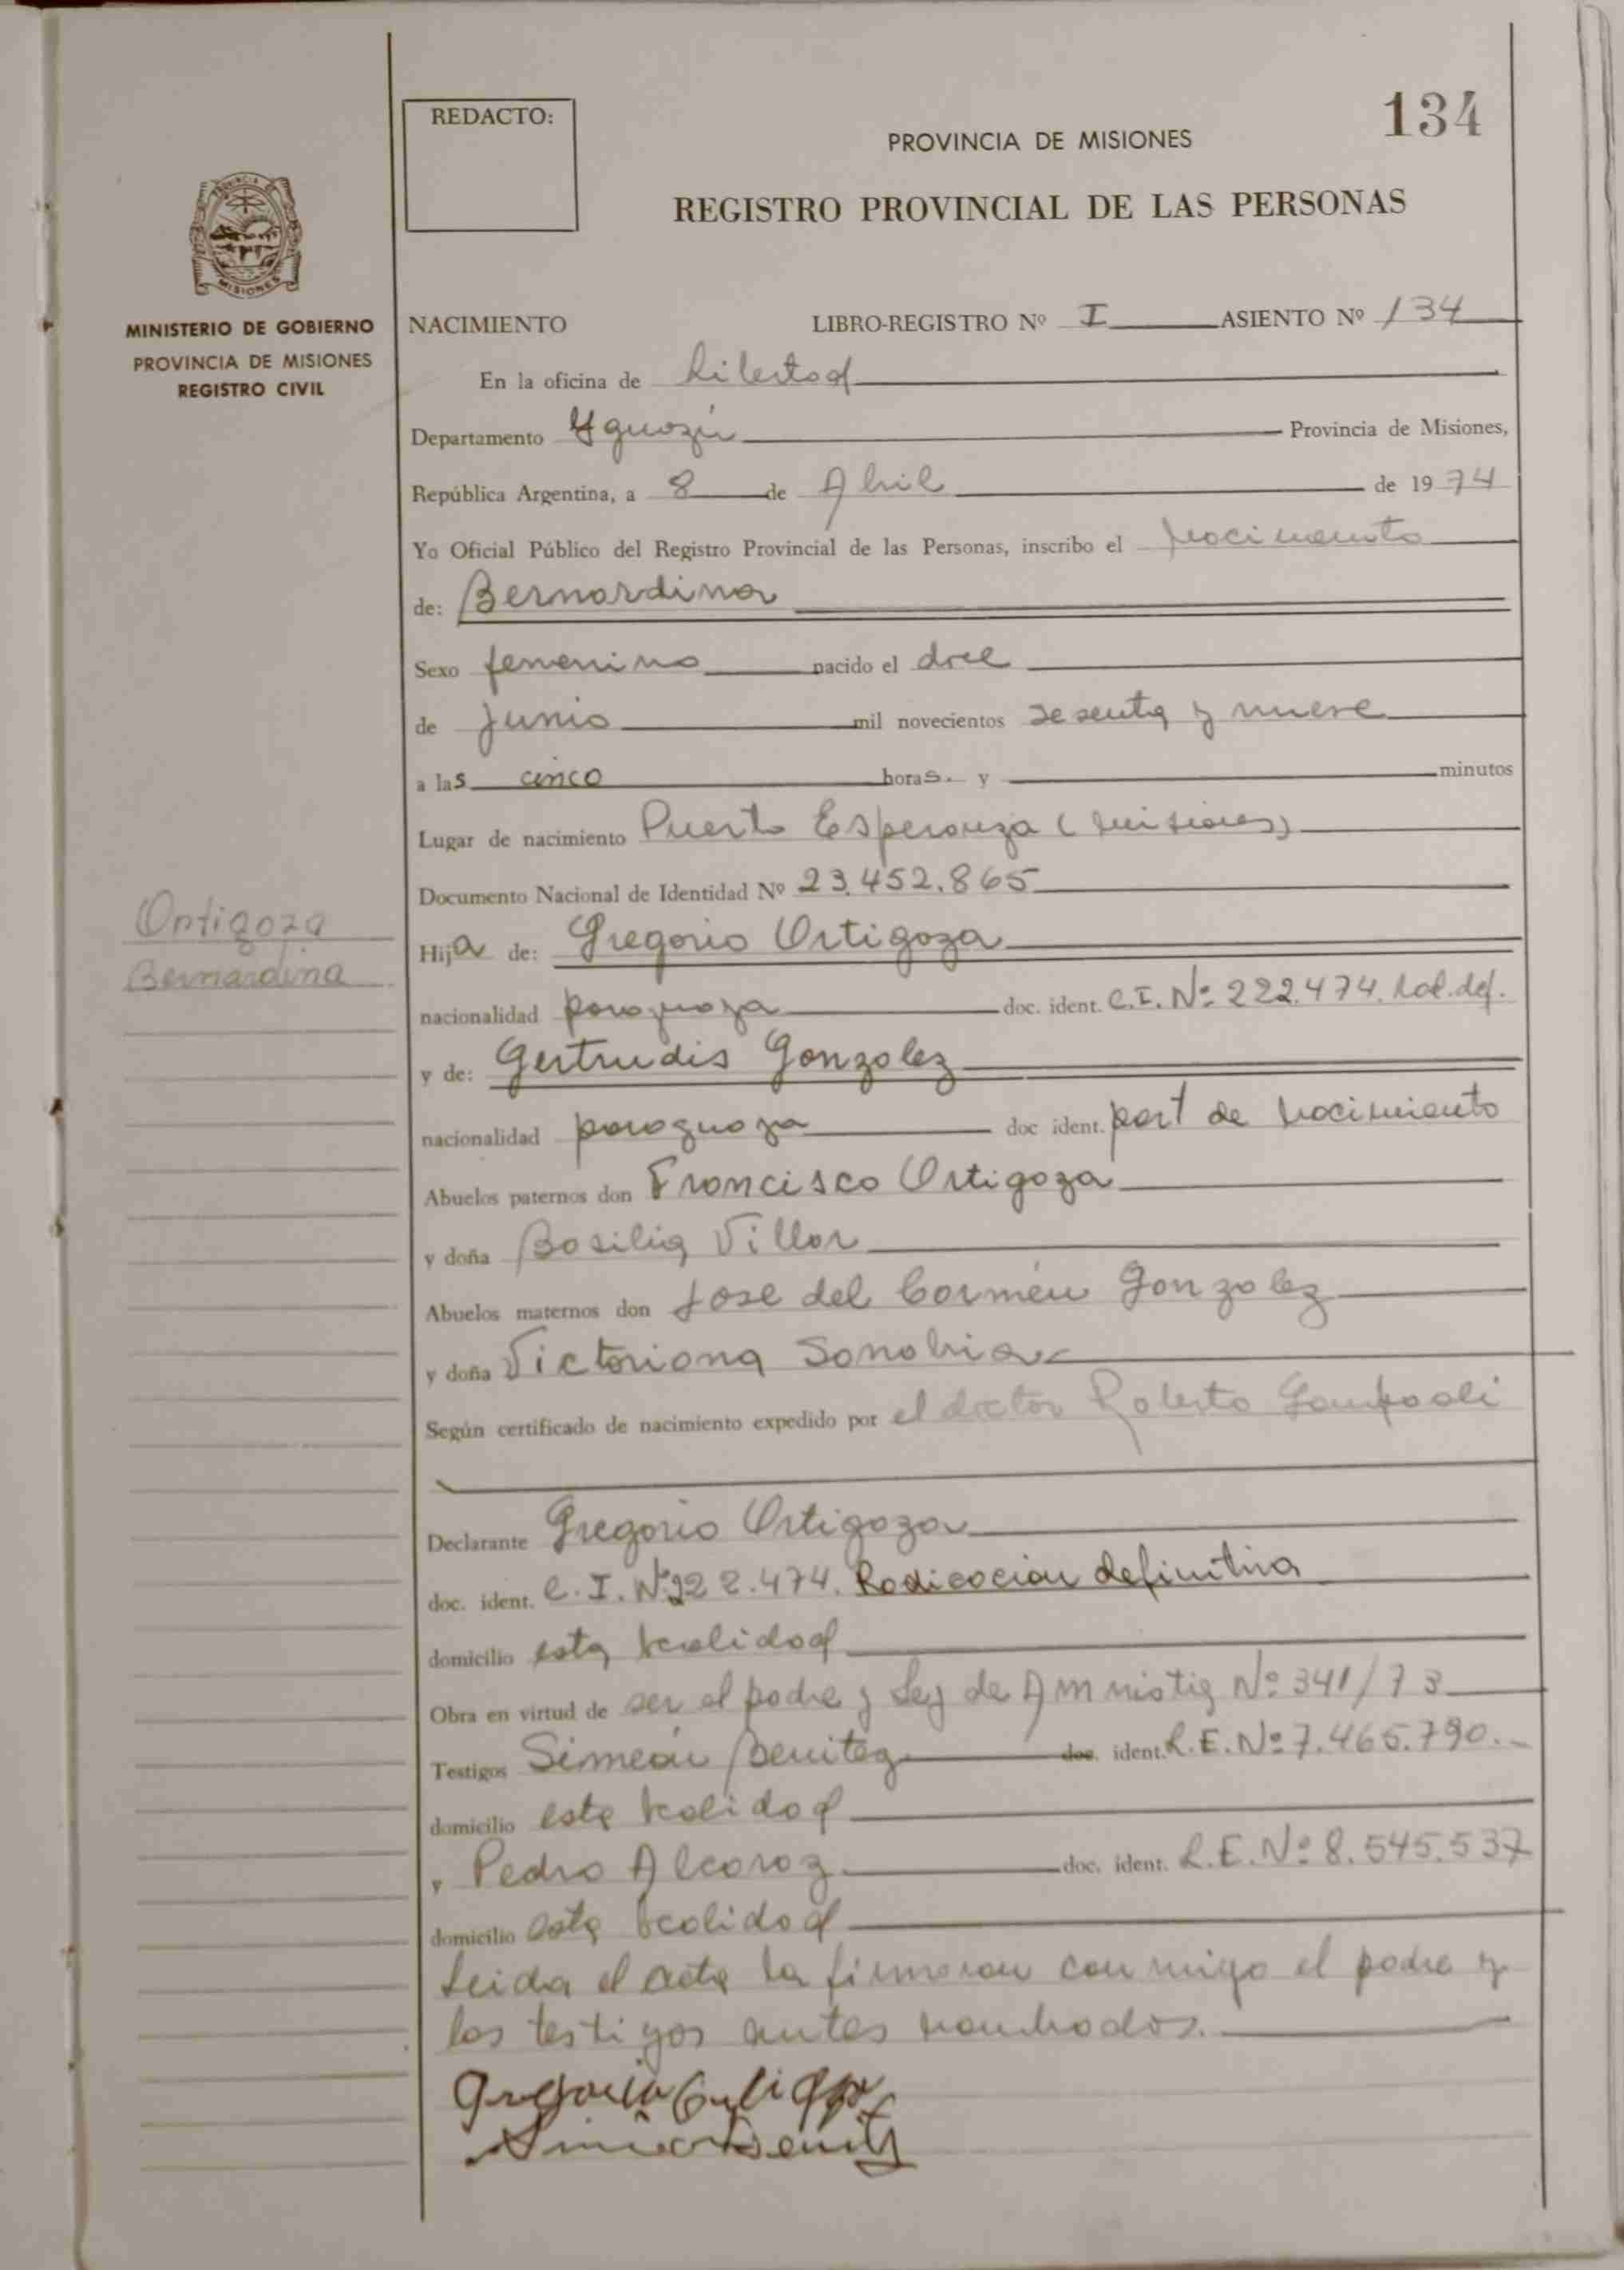 134
REDACTO:
PROVINCIA DE MISIONES
REGISTRO PROVINCIAL DE LAS PERSONAS
MISIONES
MINISTERIO DE GOBIERNO
PROVINCIA DE MISIONES
REGISTRO CIVIL
NACIMIENTO LIBRO-REGISTRO Nº I ASIENTO Nº 134
En la oficina de Libertad
Departamento Yguazú Provincia de Misiones,
República Argentina, a 8 de Abril de 1974
Yo Oficial Público del Registro Provincial de las Personas, inscribo el nacimiento
de: Bernardina
Sexo femenino nacido el doce
de junio mil novecientos sesenta y nueve
a las cinco horas. y minutos
Lugar de nacimiento Puerto Esperanza (Misiones)
Documento Nacional de Identidad Nº 23.452.865
Ortigoza
Bernardina
Hija de: Gregorio Ortigoza
nacionalidad paraguaya doc. ident. C.I. Nº 222.474. Rad. def.
y de: Gertrudis Gonzalez
nacionalidad paraguaya doc ident. part de nacimiento
Abuelos paternos don Francisco Ortigoza
y doña Basilia Villar
Abuelos maternos don Jose del Carmen Gonzalez
y doña Victoriana Sanabria
Según certificado de nacimiento expedido por el doctor Roberto
Declarante Gregorio Ortigoza
doc. ident. C.I. Nº 222.474. Radicacion definitiva
domicilio esta localidad
Obra en virtud de ser el padre y Ley de Amnistia Nº 341/73
Testigos Simeón Benitez doc. ident. L.E. Nº 7.465.790.
domicilio esta localidad
y Pedro Alcaraz doc. ident. L.E. Nº 8.545.537
domicilio esta localidad
Leida el acta la firmaron conmigo el padre y
los testigos antes nombrados.
Gregorio Ortigoza
Simeon Benitez